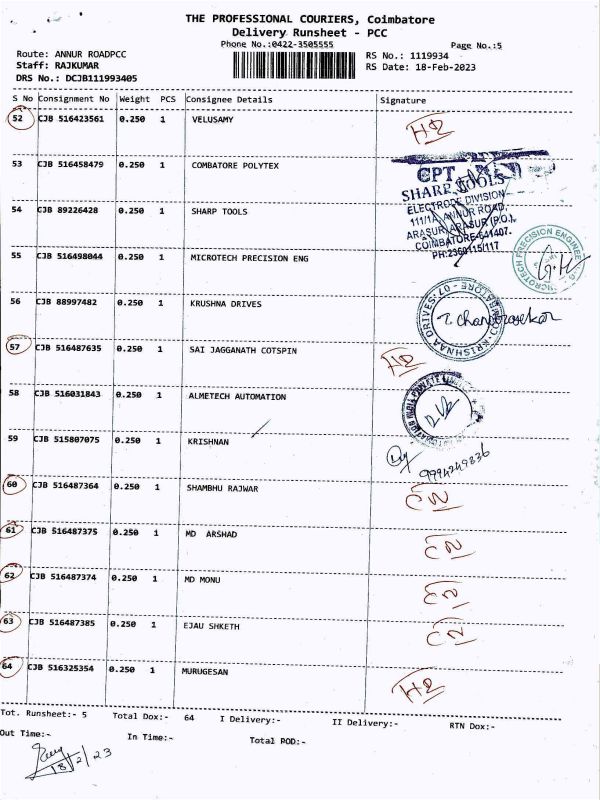 THE PROFESSIONAL COURIERS, Coimbatore
Delivery Runsheet - PCC
Phone No.:0422-3505555
Page No.:5
Route: ANNUR ROADPCC
RS No.: 1119934
Staff: RAJKUMAR
RS Date: 18-Feb-2023
DRS No.: DCJB111993405
S No Consignment No Weight PCS Consignee Details Signature
52 CJB 516423561 0.250 1 VELUSAMY
53 CJB 516458479 0.250 1 COMBATORE POLYTEX
CPT
SHARP TOOLS
ELECTRODE DIVISION
111/1A, ANNUR ROAD,
ARASUR, ARASUR (P.O.),
COIMBATORE-641407.
PH:2360115/117
54 CJB 89226428 0.250 1 SHARP TOOLS
55 CJB 516498044 0.250 1 MICROTECH PRECISION ENG
56 CJB 88997482 0.250 1 KRUSHNA DRIVES
KRISHNAA DRIVES
COIMBATORE - 07
57 CJB 516487635 0.250 1 SAI JAGGANATH COTSPIN
58 CJB 516031843 0.250 1 ALMETECH AUTOMATION
59 CJB 515807075 0.250 1 KRISHNAN
9994249836
60 CJB 516487364 0.250 1 SHAMBHU RAJWAR
61 CJB 516487375 0.250 1 MD ARSHAD
62 CJB 516487374 0.250 1 MD MONU
63 CJB 516487385 0.250 1 EJAU SHKETH
64 CJB 516325354 0.250 1 MURUGESAN
Tot. Runsheet:- 5 Total Dox:- 64 I Delivery:- II Delivery:- RTN Dox:-
Out Time:- In Time:- Total POD:-
18/2/23